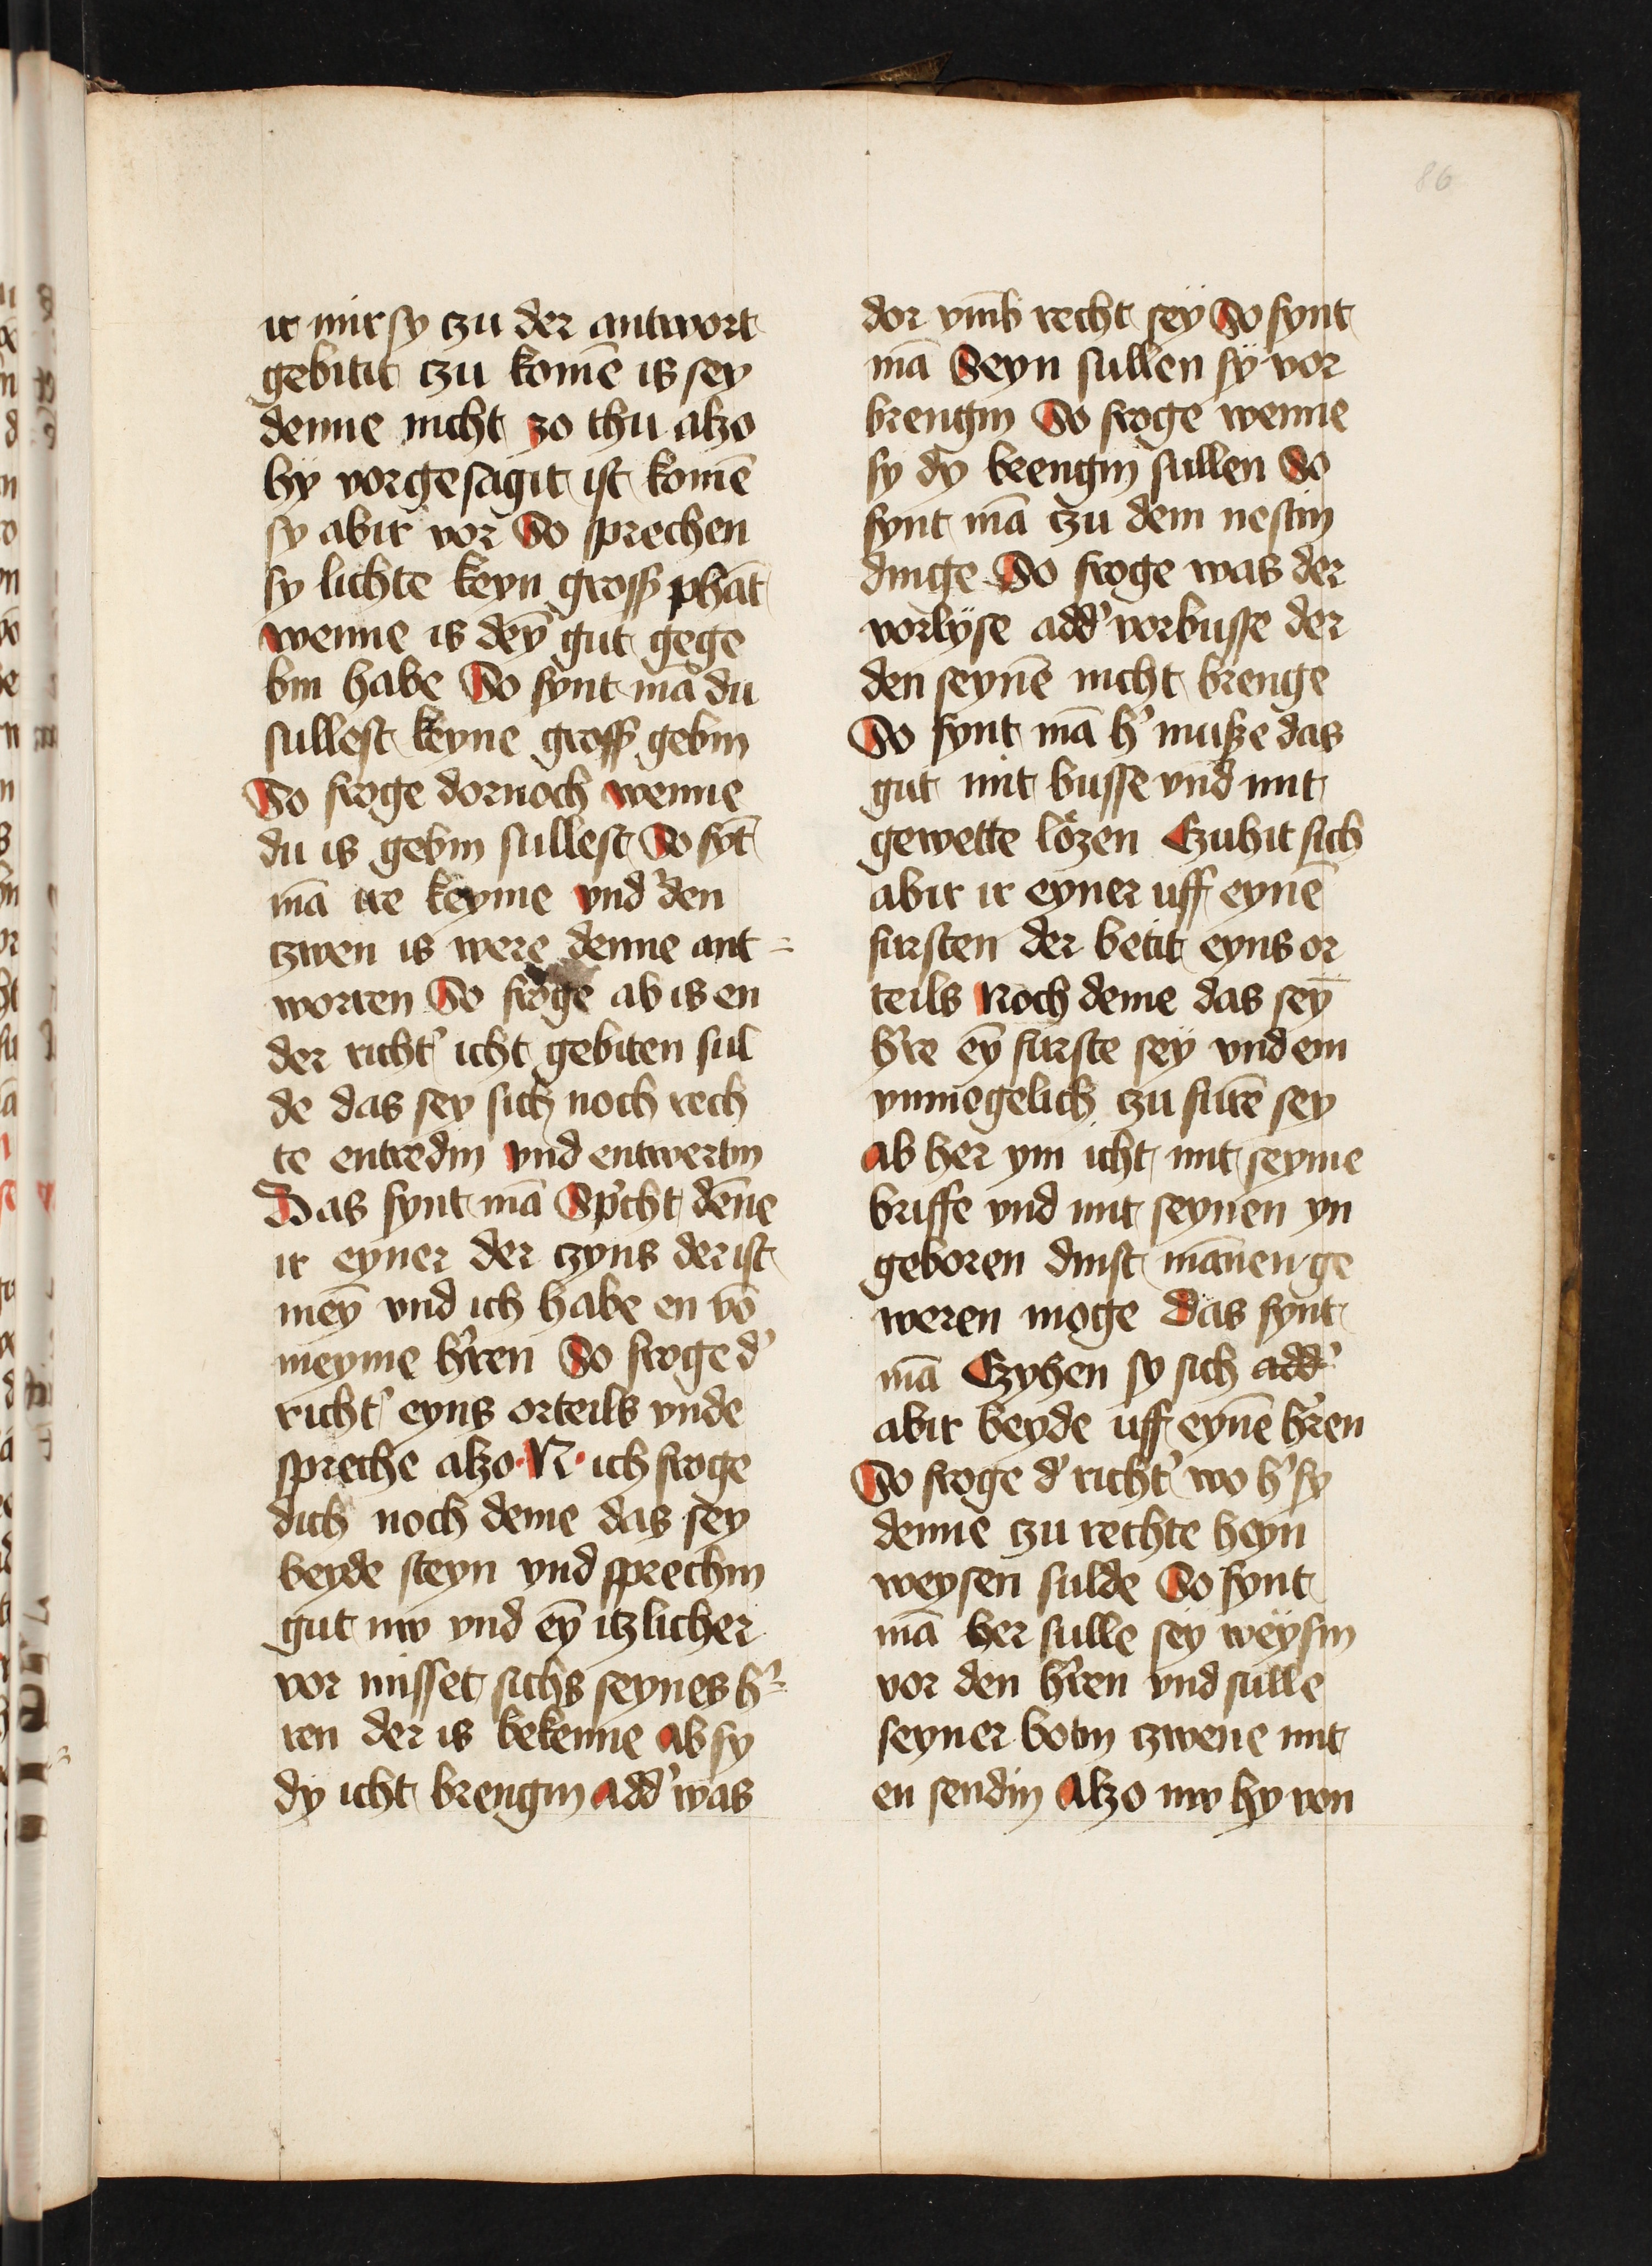 86
ir mir sy czu der antwort
gebitit czu komē is sey
denne nicht zo thu alzo
hy vorgesagit ist komē
sy abir vor So sprechen
sy lichte keyn gross phāt
wenne is deȳ gut gege
bin habe So fynt mā du
sullest keyne gross gebin
So froge dornoch wenne
du is gebin sullest So fȳt
mā ire keyme vnd' den
czwen is were denne ant=
worten So froge ab is en
der richt' icht gebiten sul
de das sey sich noch rech
te entredin vnd entwertin
Das fynt mā Sp'cht dēne
ir eyner der czyns der ist
meȳ vnd ich habe en vō
meyme h'ren So froge d'
richt' eyns orteils vnde
spreche alzo · N · ich froge
dich noch deme das sey
beyde steyn vnd sprechin
gut nw vnd eȳ itzlicher
vor misset sichs seynes h'=
ren der is bekenne ab sy
dy icht brengin add' was
dor vmb recht seÿ So fynt
mā Seyn sullen sÿ vor
brengin So froge wenne
sy dy brengin sullen So
fynt mā czu dem nestin
dinge So froge was der
vorlÿse add' vorbusse der
den seynē nicht brenge
So fynt mā h' musze das
gut mit busse vnd mit
gewette lözen Czuhit sich
abir ir eyner uff eynē
fursten der betit eyns or
teils Noch deme das seȳ
h're eȳ furste seÿ vnd em
vnmogelich czu furē sey
ab her ym icht mit seyme
briffe vnd mit seynen yn
geboren dinst mānen ge
weren moge Das fynt
mā Czyhen sy sich add'
abir beyde uff eynē h'ren
So froge d' richt' wo h' sy
denne czu rechte heyn
weysen sulde So fynt
mā her sulle sey weÿsin
vor den h'ren vnd sulle
seyner botin czwene mit
en sendin Alzo nw hy von